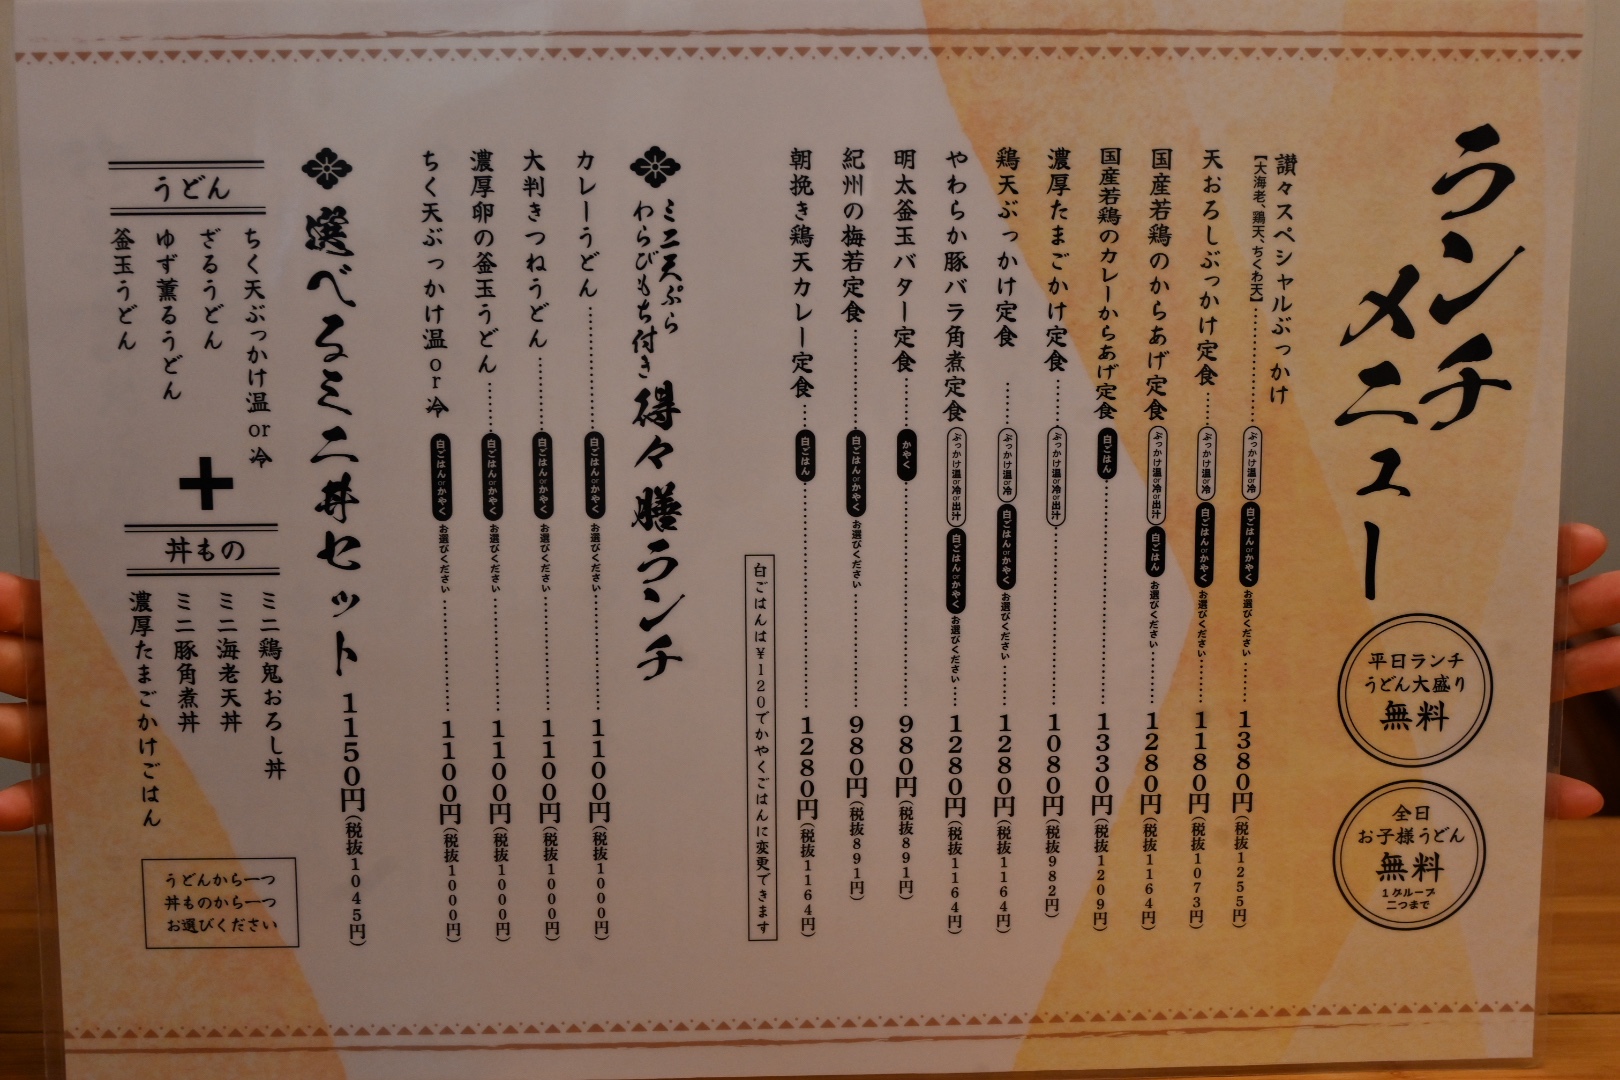 ランチ
メニュー
平日ランチ
うどん大盛り
無料
全日
お子様うどん
無料
1グループ
二つまで
讃々スペシャルぶっかけ
【大海老、鶏天、ちくわ天】 ぶっかけ温or冷 白ごはんorかやく お選びください 1380円(税抜1255円)
天おろしぶっかけ定食 ぶっかけ温or冷 白ごはんorかやく お選びください 1180円(税抜1073円)
国産若鶏のからあげ定食 ぶっかけ温or冷or出汁 白ごはん お選びください 1280円(税抜1164円)
国産若鶏のカレーからあげ定食 白ごはん 1330円(税抜1209円)
濃厚たまごかけ定食 ぶっかけ温or冷or出汁 1080円(税抜982円)
鶏天ぶっかけ定食 ぶっかけ温or冷 白ごはんorかやく お選びください 1280円(税抜1164円)
やわらか豚バラ角煮定食 ぶっかけ温or冷or出汁 白ごはんorかやく お選びください 1280円(税抜1164円)
明太釜玉バター定食 かやく 980円(税抜891円)
紀州の梅若定食 白ごはんorかやく お選びください 980円(税抜891円)
朝挽き鶏天カレー定食 白ごはん 1280円(税抜1164円)
白ごはんは¥120でかやくごはんに変更できます
ミニ天ぷら
わらびもち付き 得々膳ランチ
カレーうどん 白ごはんorかやく お選びください 1100円(税抜1000円)
大判きつねうどん 白ごはんorかやく お選びください 1100円(税抜1000円)
濃厚卵の釜玉うどん 白ごはんorかやく お選びください 1100円(税抜1000円)
ちく天ぶっかけ温or冷 白ごはんorかやく お選びください 1100円(税抜1000円)
選べるミニ丼セット 1150円(税抜1045円)
うどん
ちく天ぶっかけ温or冷
ざるうどん
ゆず薫るうどん
釜玉うどん
+
丼もの
ミニ鶏鬼おろし丼
ミニ海老天丼
ミニ豚角煮丼
濃厚たまごかけごはん
うどんから一つ
丼ものから一つ
お選びください